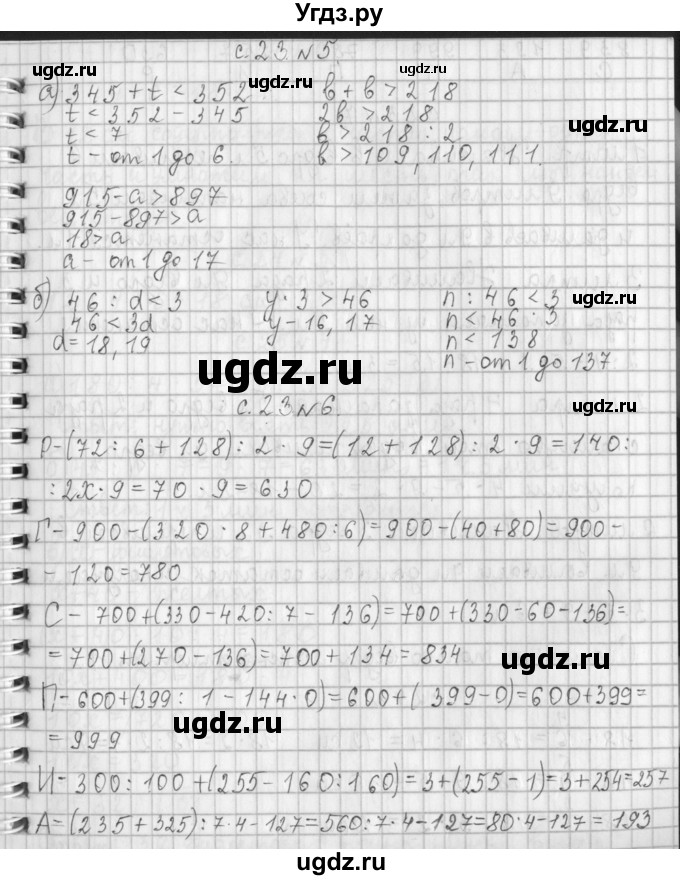 Угдз.ру
с. 23. № 5.
ugdz.ru ugdz.ru
а) 345 + t < 352 в + в > 218
t < 352 - 345 2в > 218
ugdz.ru
t < 7 в > 218 : 2
t - от 1 до 6. в > 109, 110, 111.
915 - а > 897
915 - 897 > а
18 > а
а - от 1 до 17
б) 46 : d < 3 y · 3 > 46 n : 46 < 3
ugdz.ru ugdz.ru
46 < 3d y - 16, 17 n < 46 · 3
d = 18, 19 n < 138
n - от 1 до 137
ugdz.ru
с. 23 № 6. ugdz.ru
Р - (72 : 6 + 128) : 2 · 9 = (12 + 128) : 2 · 9 = 140 :
: 2х · 9 = 70 · 9 = 630
Г - 900 - (320 · 8 + 480 : 6) = 900 - (40 + 80) = 900 -
- 120 = 780
ugdz.ru
С - 700 + (330 - 420 : 7 - 136) = 700 + (330 - 60 - 136) =
= 700 + (270 - 136) = 700 + 134 = 834
ugdz.ru
П - 600 + (399 : 1 - 144 · 0) = 600 + ( 399 - 0) = 600 + 399 =
ugdz.ru
= 999
И - 300 : 100 + (255 - 160 : 160) = 3 + (255 - 1) = 3 + 254 = 257
А = (235 + 325) : 7 · 4 - 127 = 560 : 7 · 4 - 127 = 80 · 4 - 127 = 193
ugdz.ru ugdz.ru
ugdz.ru